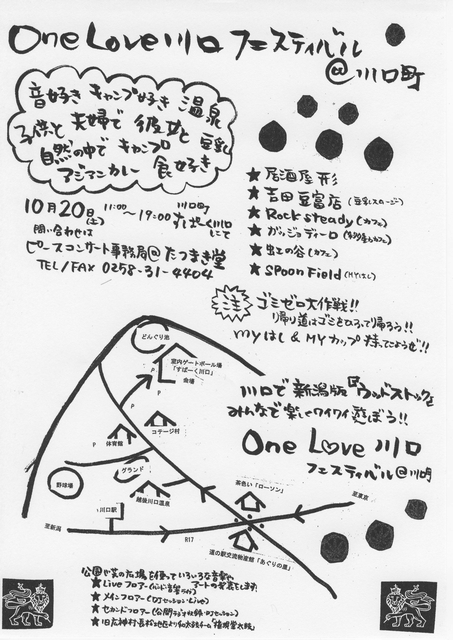 One Love 川口 フェスティバル
@川口町
音好き キャンプ好き 温泉
子供と 夫婦で 彼女と 豆乳
自然の中で キャンプ
アジアンカレー 食好き
10月20日(土) 11:00〜19:00 川口町
すぱーく川口にて
問い合わせは
ピースコンサート事務局@たつまき堂
TEL/FAX 0258-31-4404
★居酒屋 形
★吉田豆富店(豆乳スムージー)
★Rock steady(カフェ)
★ガッジョディーロ(カフェ)
★虹の谷(カフェ)
★SPoon Field(MYはし)
注 ゴミゼロ大作戦!!
帰り道はゴミをひろって帰ろう!!
myはし&MYカップ 持ってこようぜ!!
川口で新潟版『ウッドストック』を
みんなで楽しくワイワイ遊ぼう!!
One Love 川口
フェスティバル@川口町
どんぐり池
室内ゲートボール場
「すぱーく川口」
会場
P
P
P
コテージ村
体育館
グランド
野球場
越後川口温泉
茶色い「ローソン」
至東京
川口駅
至新潟
R17
道の駅交流物産館「あぐりの里」
公園や芝の広場を使っていろいろな音楽や
アートの発表をします!
★Liveフロアー
★メインフロアー(DJセッション・Live)
★セカンドフロアー